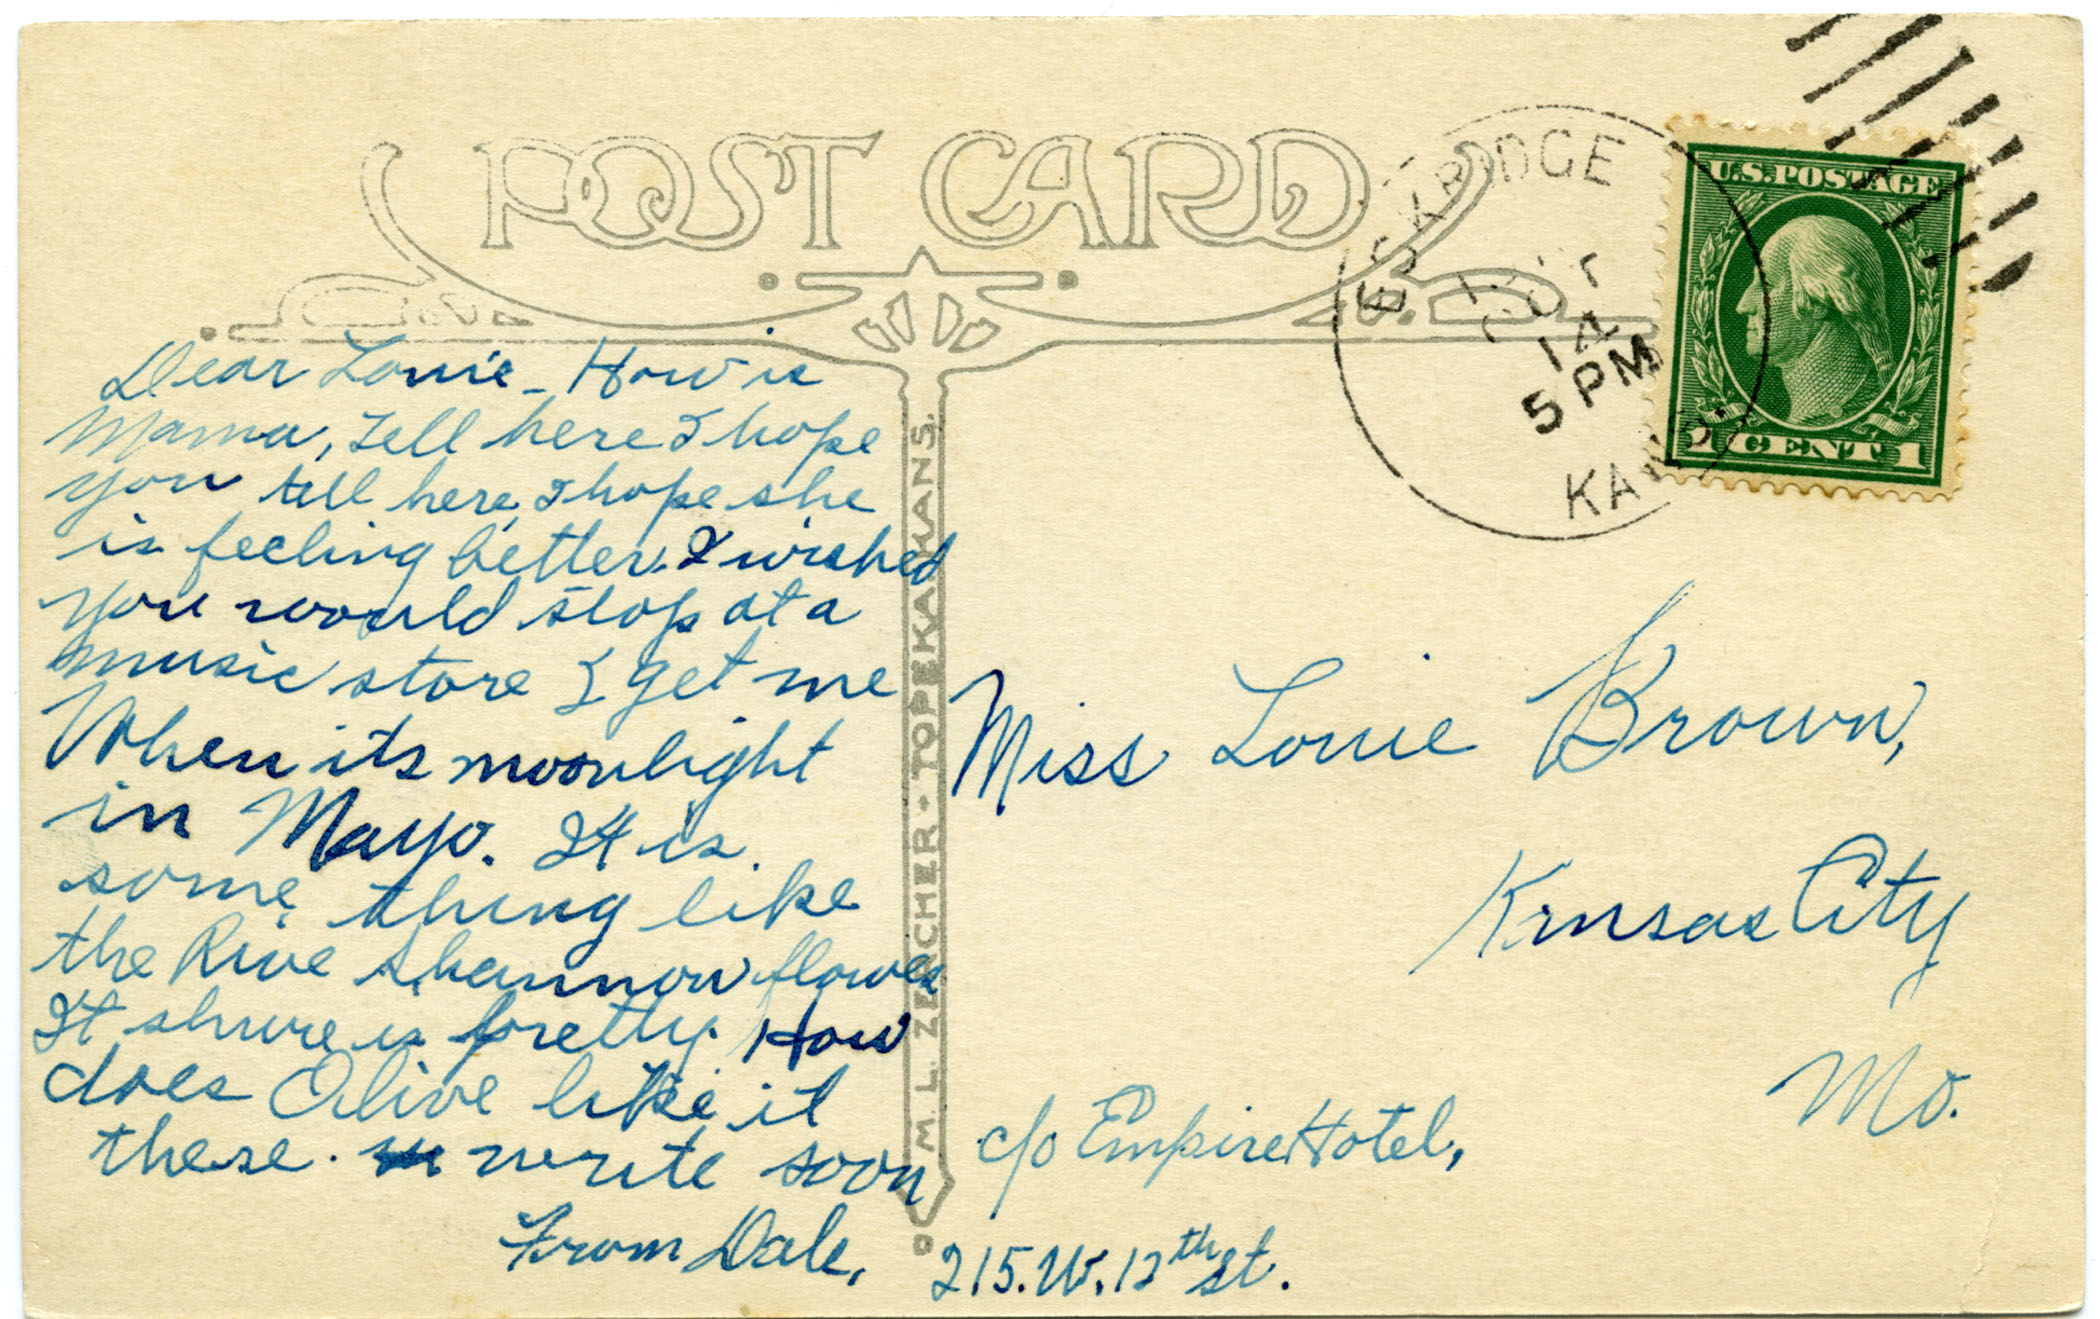 POST CARD
ESKRIDGE
OCT
14
5 PM
KANS.
U.S. POSTAGE
1 CENT 1
Dear Louie - How is
Mama, Tell here I hope
you tell here, I hope she
is feeling better. I wished
you would stop at a
music store & get me
When its moonlight
in Mayo. It is
some thing like
the Rive Shannow flowes
It shure is pretty. How
does Olive like it
there. write soon
From Dale,
M. L. ZERCHER · TOPEKA, KANS.
Miss Louie Brown,
Kansas City
Mo.
c/o Empire Hotel,
215. W. 12th St.